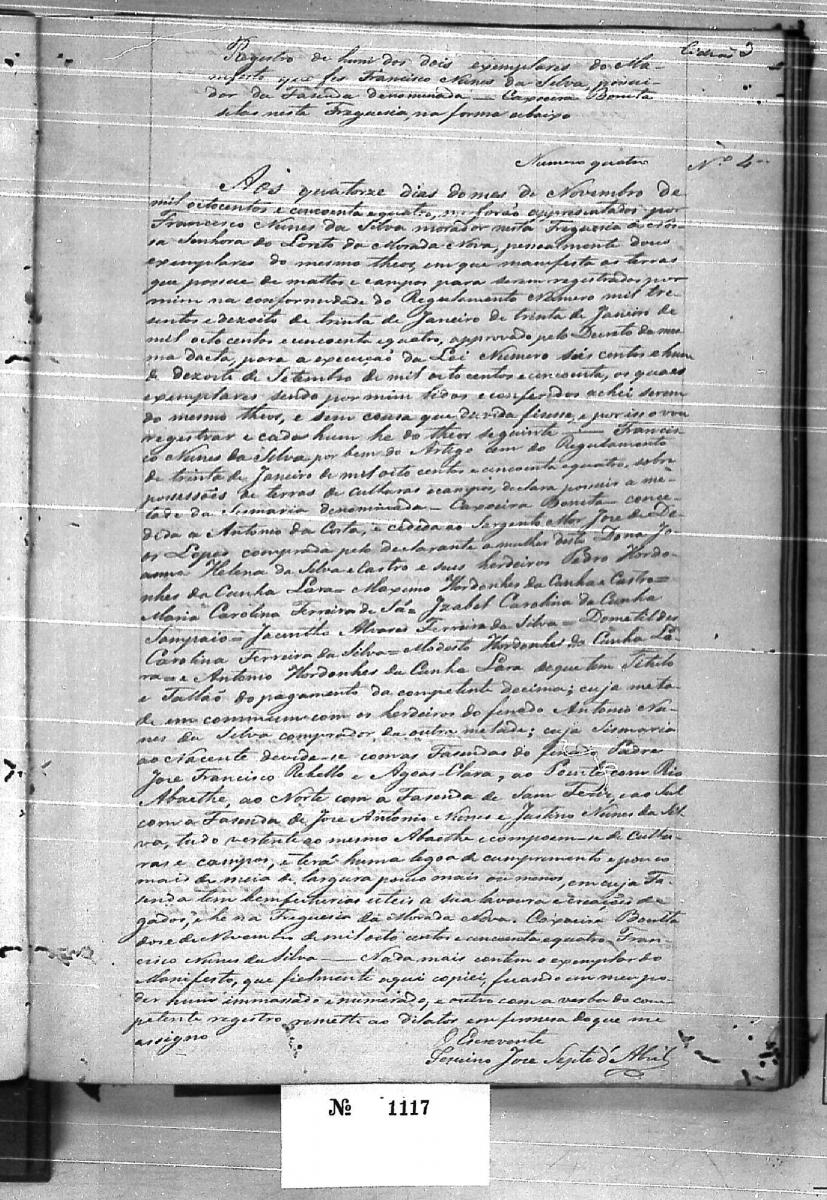 Registro de hum dos dois exemplares do Ma-
nifesto que fes Francisco Nunes da Silva, possui-
dor da Fasenda denominada — Capoeira Bonita
nesta Freguesia, na forma abaixo
3
Numero quatro
Nº 4
Aos quatorze dias do mes de Novembro de
mil oitocentos e cincoenta e quatro, me forão appresentados por
Francisco Nunes da Silva morador nesta Freguesia de Nos-
sa Senhora do Loreto da Morada Nova, pessoalmente dous
exemplares do mesmo theor, em que manifesta as terras
que possue de mattos e campos para serem registrados por
mim na conformidade do Regulamento Numero mil tre-
sentos e dezoito de trinta de Janeiro de trinta de Janeiro de
mil oito centos e cincoenta e quatro, approvado pelo Decreto da mes-
ma dacta, para a execução da Lei Numero seis centos e hum
de dezoito de Setembro de mil oito centos e cincoenta, os quaes
exemplares sendo por mim lidos e conferidos achei serem
do mesmo theor, e sem cousa que duvida fisesse, e por isso vou
registrar e cada hum he do theor seguinte — Francis-
co Nunes da Silva, por bem do Artigo cem do Regulamento
de trinta de Janeiro de mil oito centos e cincoenta e quatro, sobre
possessões de terras de culturas e campos, declara possuir a me-
tade da Sismaria denominada — Capoeira Bonita — conce-
dida a Antonio da Costa, e cedida ao Sargento Mor José de De-
os Lopes comprada pelo declarante a mulher deste Dona Jo-
anna Helena da Silva e Castro e seus herdeiros Pedro Hordo-
nhes da Cunha Lara = Maximo Hordonhes da Cunha e Castro =
Maria Carolina Ferreira de Sá = Izabel Carolina da Cunha
Sampaio = Jacintho Alvares Ferreira da Silva = Dometildes
Carolina Ferreira da Silva = Modesto Hordonhes da Cunha La-
ra = e Antonio Hordonhes da Cunha Lara de que tem Titulo
e Tallão do pagamento da competente decima; cuja meta-
de em commum com os herdeiros do finado Antonio Nu-
nes da Silva comprador da outra metade; cuja Sismaria
ao Nacente devide-se com as Fasendas do finado Padre
José Francisco Rebello e Agoas Clara; ao Poente com Rio
Abaethe, ao Norte com a Fasenda de Sam e ao Sul
com a Fasenda de Jose Antonio Nunes e Justino Nunes da Sil-
va, tudo vertente ao mesmo Abaethe e compoem-se de Cultu-
ras e campos, e terá huma legoa de cumprimento e pouco
mais de meia de largura pouco mais ou menos, em cuja Fa-
senda tem bemfeitorias uteis a sua lavoura e creações de
gados, e he na Freguesia da Morada Nova. Capoeira Bonita
dose de Novembro de mil oito centos e cincoenta e quatro. Fran-
cisco Nunes da Silva — Nada mais contem o exemplar do
Manifesto, que fielmente aqui copiei, ficando em meu po-
der hum immassado e numerado, e outro com a verba do com-
petente registro remetti ao dilator em firmesa do que me
assigno
O Escrevente
Jose Septe d'Abril
Nº 1117